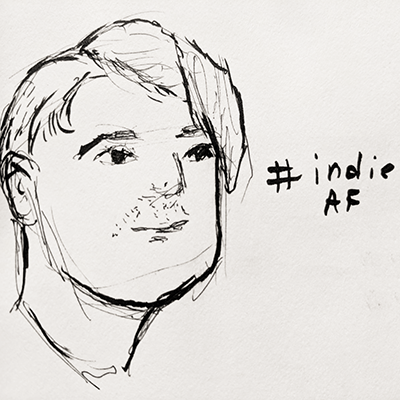 # indie
AF